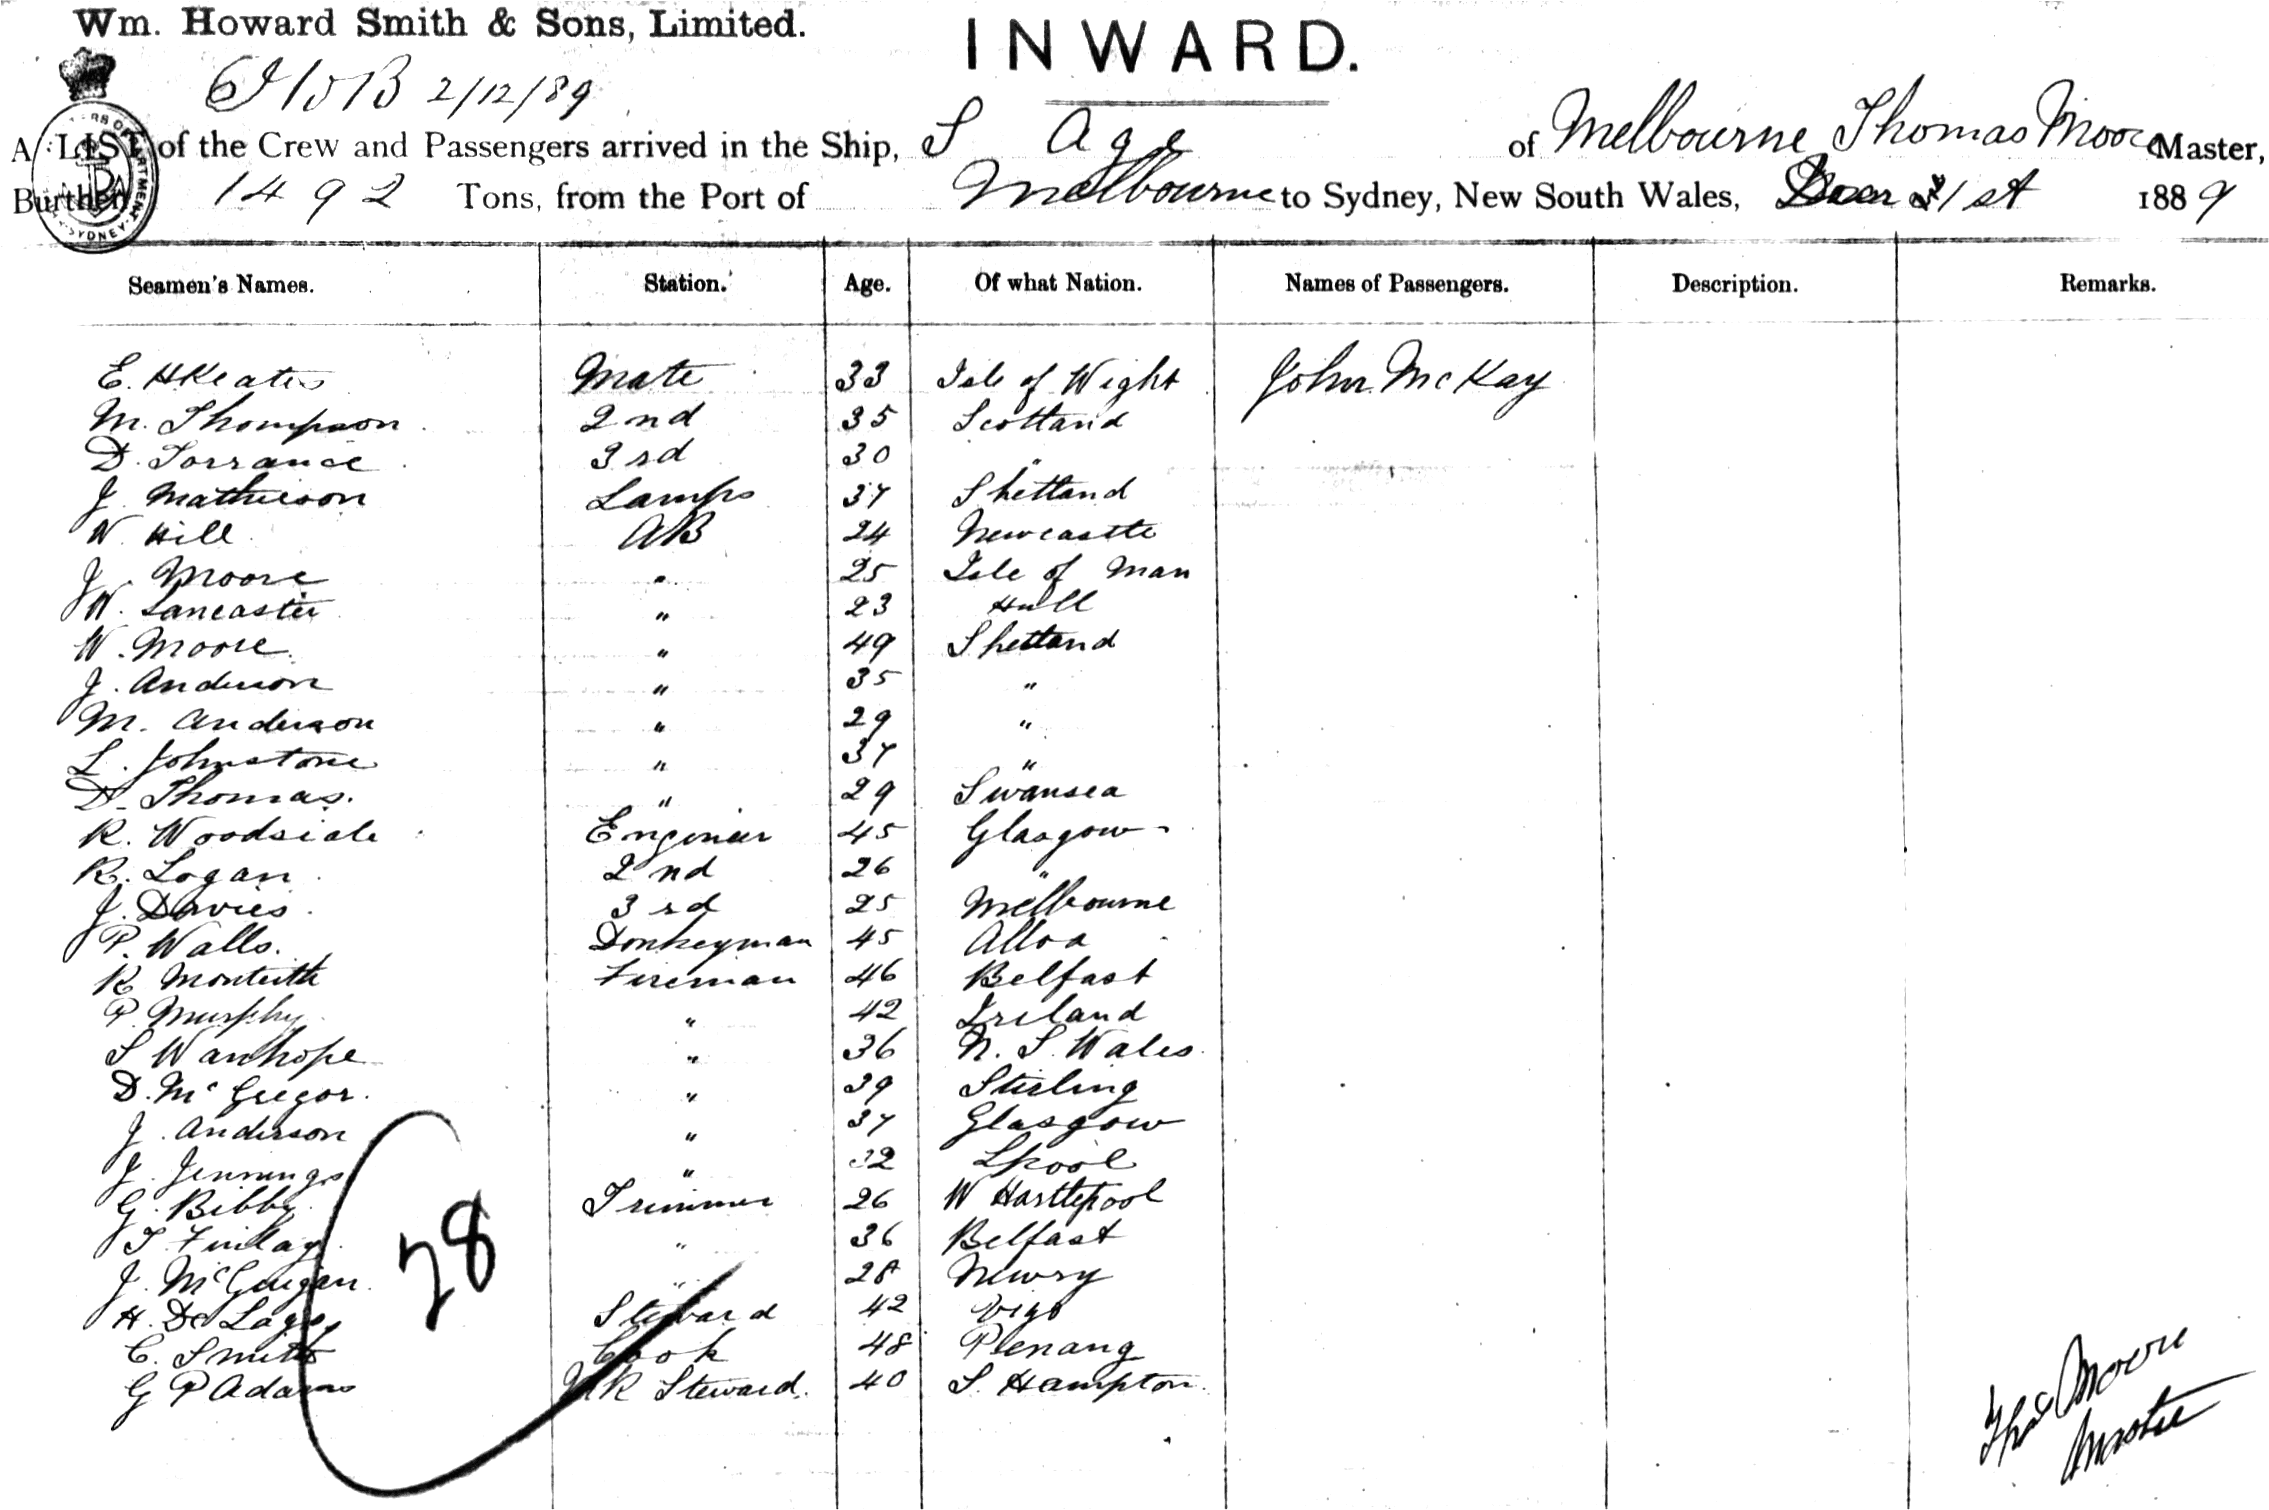 Wm. Howard Smith & Sons, Limited.
INWARD.
2/12/89
A LIST of the Crew and Passengers arrived in the Ship, S Age of Melbourne Thomas Moore Master,
Burthen 1492 Tons, from the Port of Melbourne to Sydney, New South Wales, 1st 1889
Seamen's Names. Station. Age. Of what Nation. Names of Passengers. Description. Remarks.
E. H Keates Mate 33 Isle of Wight John McKay
M. Thompson 2nd 35 Scotland
D. Torrance 3rd 30 "
J. Mathieson Lamps 37 Shetland
W. Hill AB 24 Newcastle
J. Moore " 25 Isle of Man
W. Lancaster " 23 Hull
W. Moore " 49 Shetland
J. Anderson " 35 "
M. Anderson " 29 "
L. Johnstone " 37 "
D. Thomas. " 29 Swansea
R. Woodside Engineer 45 Glasgow
R. Logan 2nd 26 "
J. Davies 3rd 25 Melbourne
P. Walls. Donkeyman 45 Alloa
R Monteith Fireman 46 Belfast
P. Murphy " 42 Ireland
S Wanhope " 36 N. S. Wales
D. McGregor. " 39 Stirling
J. Anderson " 37 Glasgow
J. Jennings " 32 Lpool
G. Bibby Trimmer 26 W Hartlepool
T. Finlay " 36 Belfast
J. McGuigan " 28 Newry
H. De Lago Steward 42 Vigo
C. Smith Cook 48 Penang
G P Adams Steward. 40 S. Hampton
28
Thos Moore
Master